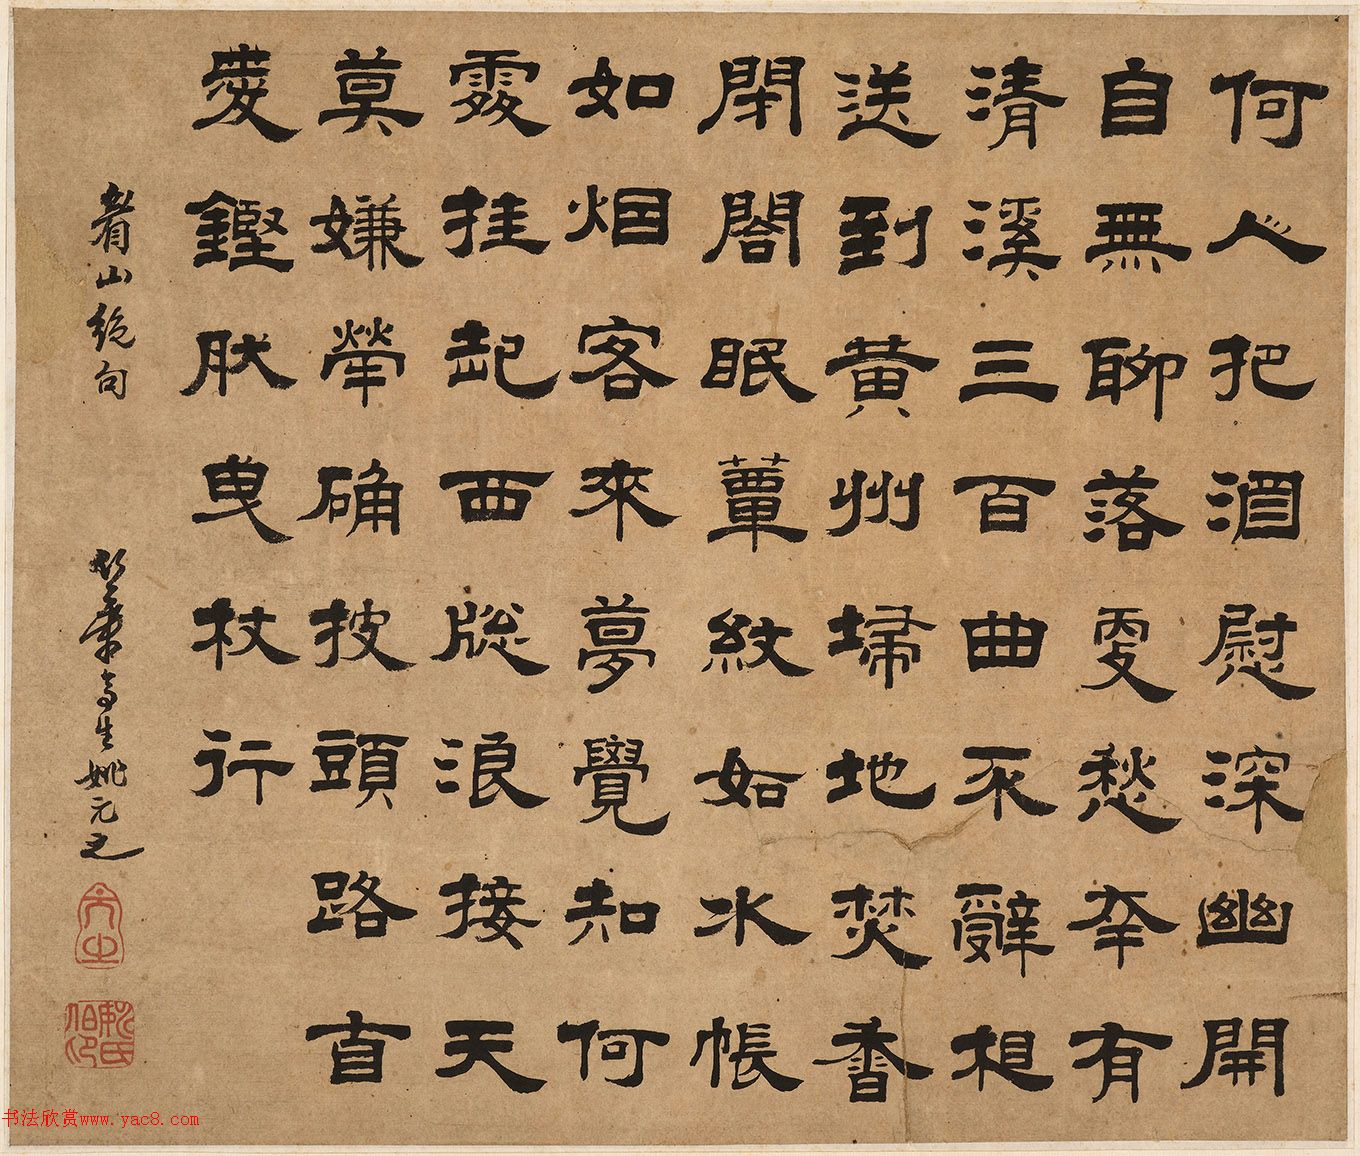 何人把酒慰深幽開
自無聊落更愁幸有
清溪三百曲不辭相
送到黄州埽地焚香
閉閤眠蕈紋如水帳
如烟客來夢覺知何
處挂起西牕浪接天
莫嫌犖确披頭路自
愛鏗肰曳杖行
眉山絶句
竹葉亭生姚元之
元之
姚氏伯卬
书法欣赏www.yac8.com